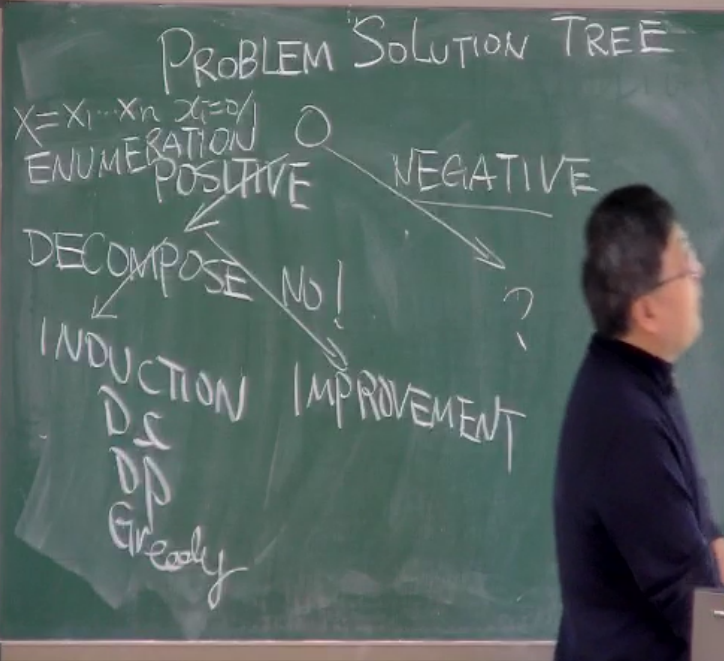 PROBLEM SOLUTION TREE
X=X1...Xn xi=0/1
ENUMERATION
POSITIVE
NEGATIVE
DECOMPOSE
NO!
?
INDUCTION
IMPROVEMENT
D&C
DP
Greedy